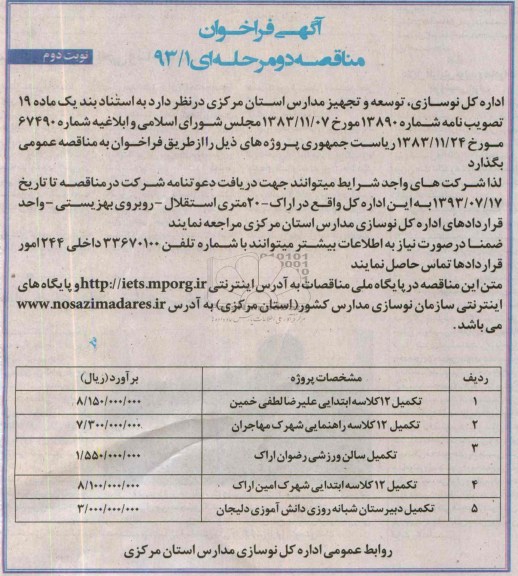 آگهی فراخوان
مناقصه دو مرحله ای ۹۳/۱
نوبت دوم
اداره کل نوسازی، توسعه و تجهیز مدارس استان مرکزی در نظر دارد به استناد بند یک ماده ۱۹
تصویب نامه شماره ۱۳۸۹۰ مورخ ۱۳۸۳/۱۱/۰۷ مجلس شورای اسلامی و ابلاغیه شماره ۶۷۴۹۰
مورخ ۱۳۸۳/۱۱/۲۴ ریاست جمهوری پروژه های ذیل را از طریق فراخوان به مناقصه عمومی
بگذارد
لذا شرکت های واجد شرایط میتوانند جهت دریافت دعوتنامه شرکت در مناقصه تا تاریخ
۱۳۹۳/۰۷/۱۷ به این اداره کل واقع در اراک - ۲۰ متری استقلال - روبروی بهزیستی - واحد
قراردادهای اداره کل نوسازی مدارس استان مرکزی مراجعه نمایند
ضمنا در صورت نیاز به اطلاعات بیشتر میتوانند با شماره تلفن ۳۳۶۷۰۱۰۰ داخلی ۲۴۴ امور
قراردادها تماس حاصل نمایند
متن این مناقصه در پایگاه ملی مناقصات به آدرس اینترنتی http://iets.mporg.ir و پایگاه های
اینترنتی سازمان نوسازی مدارس کشور (استان مرکزی) به آدرس www.nosazimadares.ir
می باشد.
ردیف مشخصات پروژه برآورد (ریال)
۱ تکمیل ۱۲ کلاسه ابتدایی علیرضا لطفی خمین ۸/۱۵۰/۰۰۰/۰۰۰
۲ تکمیل ۱۲ کلاسه راهنمایی شهرک مهاجران ۷/۳۰۰/۰۰۰/۰۰۰
۳ تکمیل سالن ورزشی رضوان اراک ۱/۵۵۰/۰۰۰/۰۰۰
۴ تکمیل ۱۲ کلاسه ابتدایی شهرک امین اراک ۸/۱۰۰/۰۰۰/۰۰۰
۵ تکمیل دبیرستان شبانه روزی دانش آموزی دلیجان ۳/۰۰۰/۰۰۰/۰۰۰
روابط عمومی اداره کل نوسازی مدارس استان مرکزی